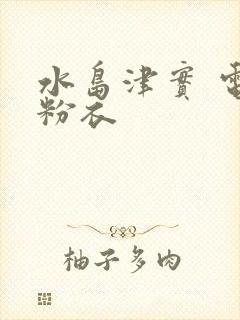 水島津實 電
粉衣
柚子多肉